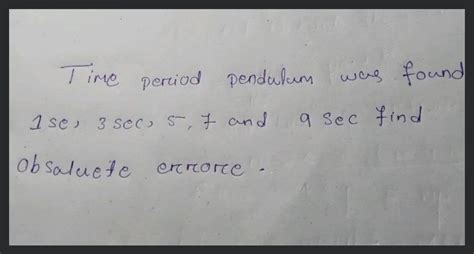 Time period pendulum was found
1se, 3sec, 5, 7 and 9 sec find
obsaluete errore.